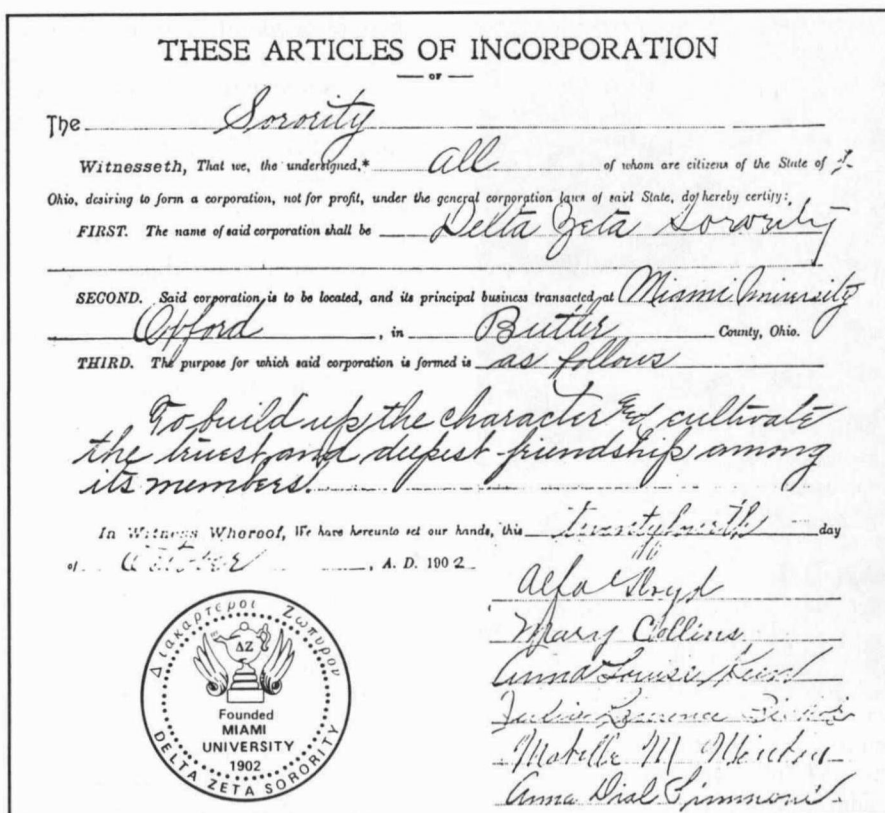 THESE ARTICLES OF INCORPORATION
OF
The Sorority
Witnesseth, That we, the undersigned,* all of whom are citizens of the State of
Ohio, desiring to form a corporation, not for profit, under the general corporation laws of said State, do hereby certify:
FIRST. The name of said corporation shall be Delta Zeta Sorority
SECOND. Said corporation is to be located, and its principal business transacted at Miami University
Oxford, in Butler County, Ohio.
THIRD. The purpose for which said corporation is formed is as follows
To build up the character and cultivate
the truest and deepest friendship among
its members.
In Witness Whereof, We have hereunto set our hands, this day
of October, A. D. 1902
Alfa Lloyd
Mary Collins
Anna Louise Keen
Julia Lawrence Bishop
Mabelle M Minton
Anna Dial Simmons
Διακαρτεροι Ζωπυρον
ΔΖ
Founded
MIAMI
UNIVERSITY
1902
DELTA ZETA SORORITY